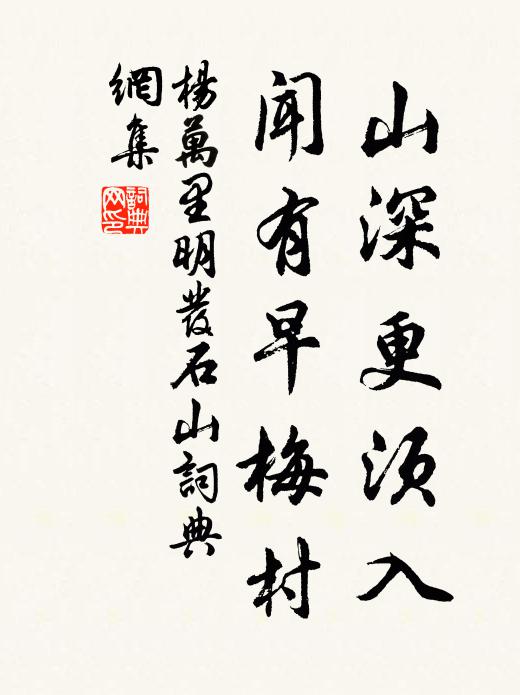 山深更須入
聞有早梅村
楊萬里明發石山詞典
網集
詞典
网印